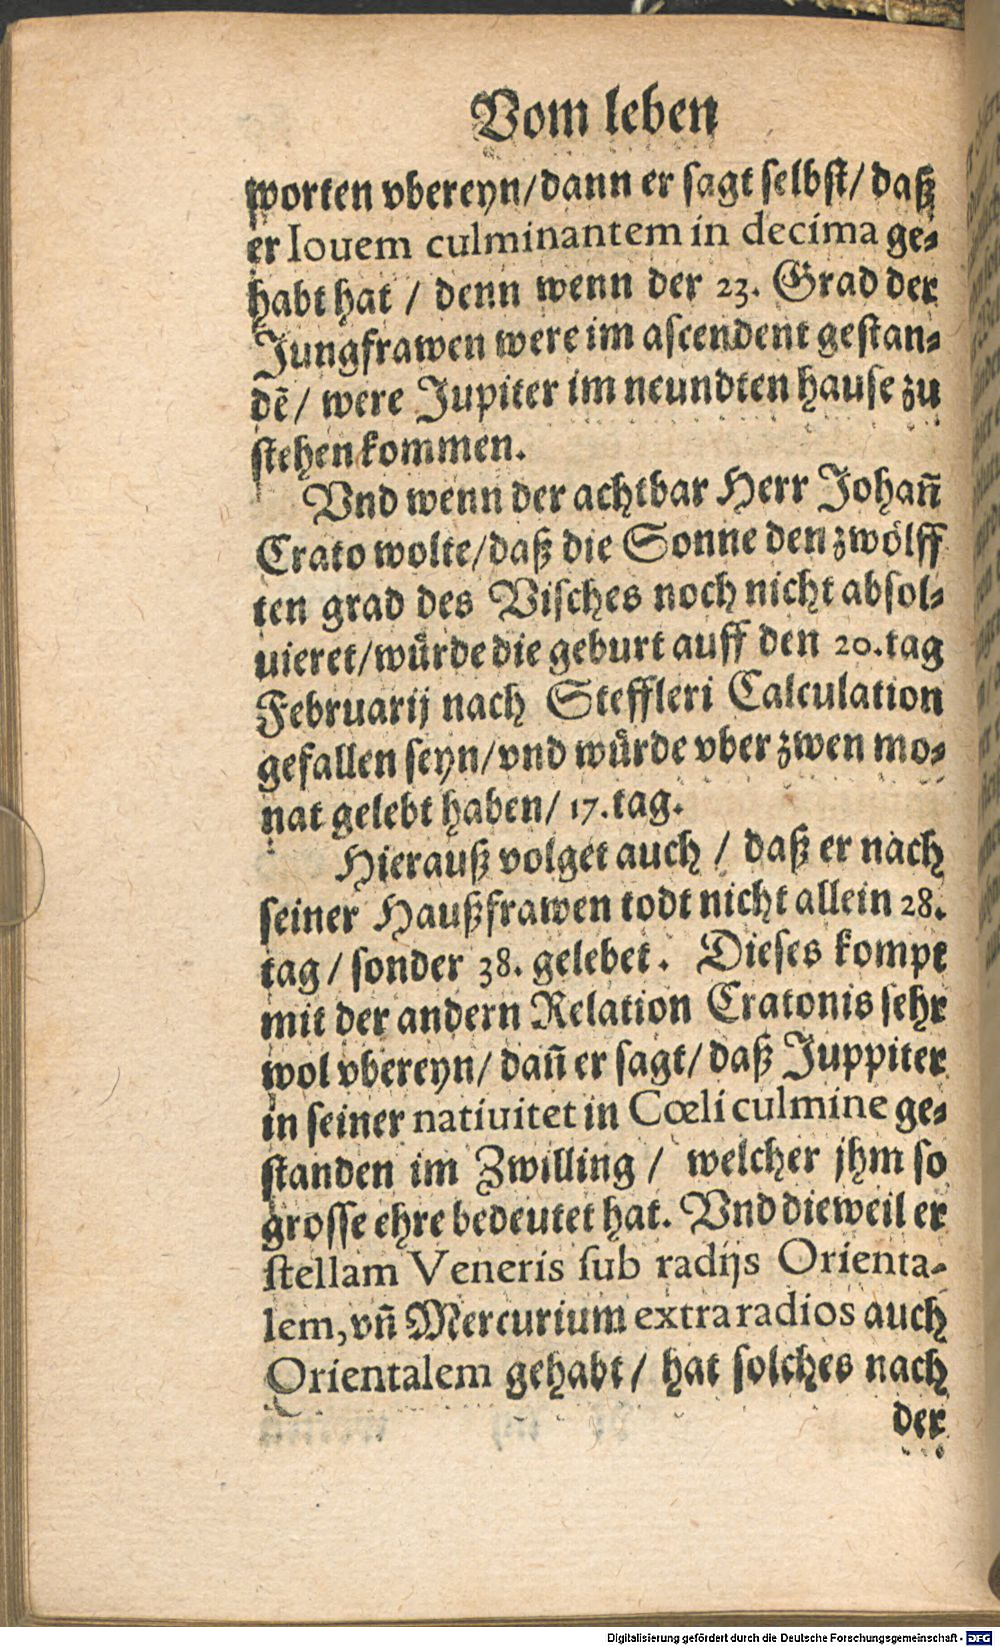 Vom leben
worten vbereyn/dann er sagt selbst/daß
er Iouem culminantem in decima ge⸗
habt hat / denn wenn der 23. Grad der
Jungfrawen were im ascendent gestan⸗
dē/ were Jupiter im neundten hause zu
stehen kommen.
Vnd wenn der achtbar Herr Johan̄
Crato wolte/daß die Sonne den zwölff
ten grad des Visches noch nicht absol⸗
uieret/wuͤrde die geburt auff den 20.tag
Februarij nach Steffleri Calculation
gefallen seyn/vnd wuͤrde vber zwen mo⸗
nat gelebt haben/ 17.tag.
Hierauß volget auch / daß er nach
seiner Haußfrawen todt nicht allein 28.
tag / sonder 38. gelebet. Dieses kompt
mit der andern Relation Cratonis sehr
wol vbereyn/ dan̄ er sagt/ daß Juppiter
in seiner natiuitet in Cœli culmine ge⸗
standen im Zwilling / welcher jhm so
grosse ehre bedeutet hat. Vnd dieweil er
stellam Veneris sub radijs Orienta-
lem, vn̄ Mercurium extra radios auch
Orientalem gehabt / hat solches nach
der
Digitalisierung gefördert durch die Deutsche Forschungsgemeinschaft - DFG